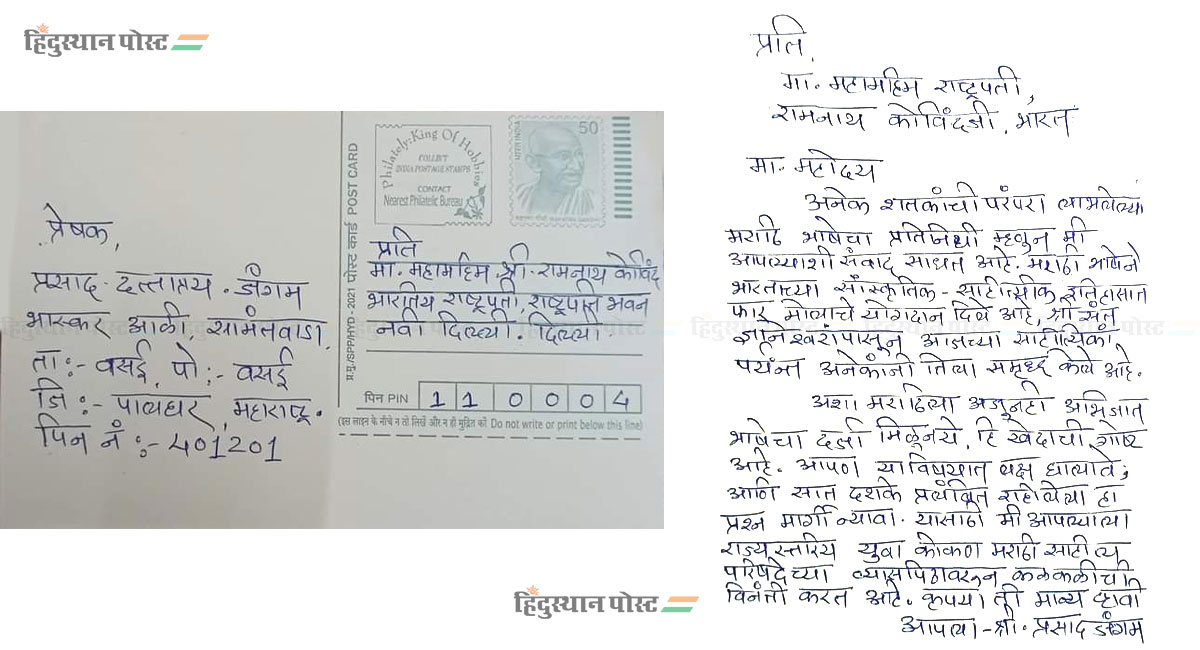 हिंदुस्थान पोस्ट
प्रेषक,
प्रसाद दत्तात्रय जंगम
भास्कर आळी, सामंतवाडा,
ता:- वसई, पो:- वसई
जि:- पालघर, महाराष्ट्र.
पिन नं:- 401201
प्र.मु./SPP/HYD - 2021 पोस्ट कार्ड POST CARD
Philately: King Of Hobbies
COLLECT
INDIA POSTAGE STAMPS
CONTACT
Nearest Philatelic Bureau
भारत INDIA
50
महात्मा गांधी MAHATMA GANDHI
प्रति
मा. महामहिम श्री. रामनाथ कोविंद
भारतिय राष्ट्रपती, राष्ट्रपति भवन
नवी दिल्ली. दिल्ली.
पिन PIN 110004
(इस लाइन के नीचे न तो लिखें और न ही मुद्रित करें Do not write or print below this line)
प्रति,
मा. महामहिम राष्ट्रपती,
रामनाथ कोविंदजी, भारत
मा. महोदय
अनेक शतकांची परंपरा लाभलेल्या
मराठी भाषेचा प्रतिनिधी म्हणून मी
आपल्याशी संवाद साधत आहे. मराठी भाषेने
भारताच्या सांस्कृतिक - साहीत्यीक इतिहासात
फार मोलाचे योगदान दिले आहे, श्री संत
ज्ञानेश्वरांपासून आजच्या साहीत्यिकां
पर्यंन्त अनेकांनी तिला समृध्द केले आहे.
अशा मराठीला अजूनही अभिजात
भाषेचा दर्जा मिळूनये, हि खेदाची गोष्ट
आहे. आपण याविषयात लक्ष घालावे;
आणि सात दशके प्रलंबित राहीलेला हा
प्रश्न मार्गी न्यावा. यासाठी मी आपल्याला
राज्यस्तरिय युवा कोकण मराठी साहीत्य
परिषदेच्या व्यासपिठावरून कळकळीची
विनंती करत आहे. कृपया ती मान्य व्हावी
आपला - श्री. प्रसाद जंगम
हिंदुस्थान पोस्ट